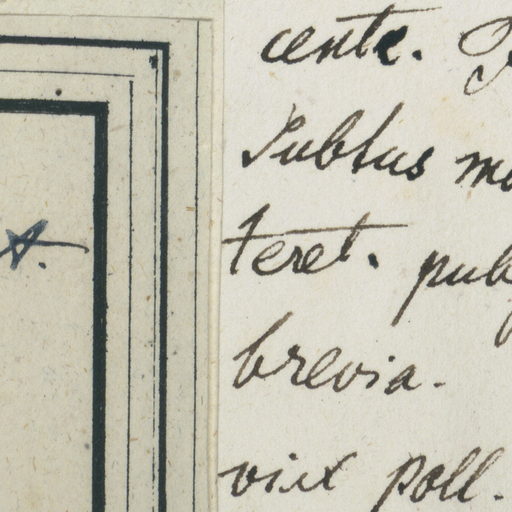 cente.
Subtus
teret. pub
brevia.
vix poll.